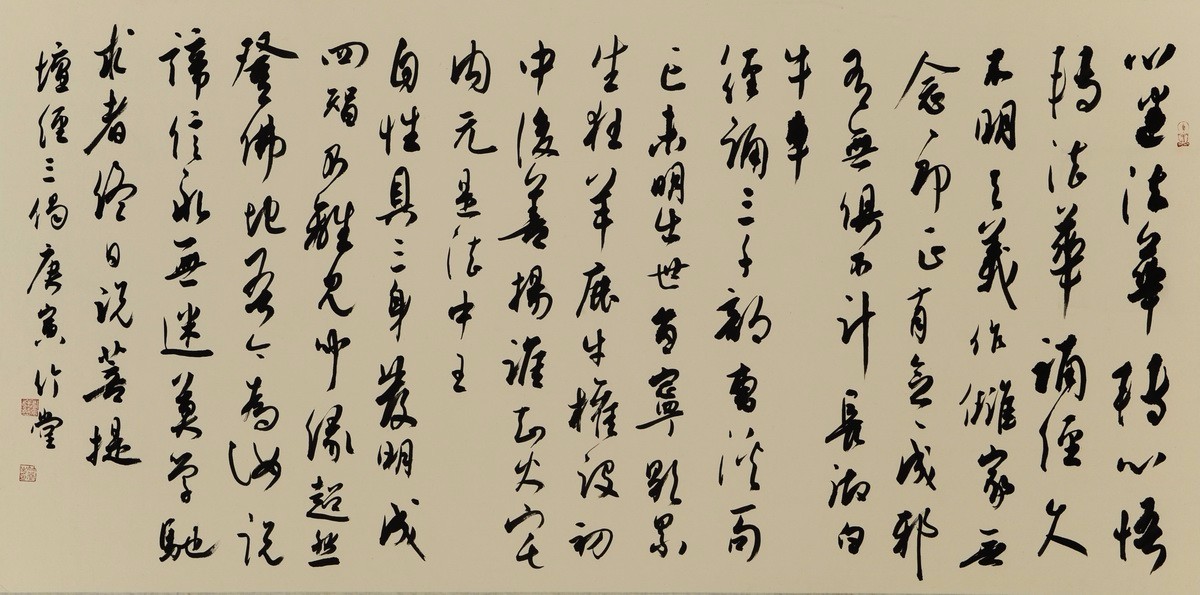 心迷法華轉心悟
轉法華誦經久
不明与義作讎家無
念々即正有念々成邪
有無俱不計長御白
牛車
經誦三千部曹溪一句
亡未明出世旨寧歇累
生狂羊鹿牛權設初
中後善揚誰知火宅
內元是法中王
自性具三身發明成
四智不離見聞緣超然
登佛地吾今為汝說
諦信永無迷莫學馳
求者終日說菩提
壇經三偈庚寅竹堂